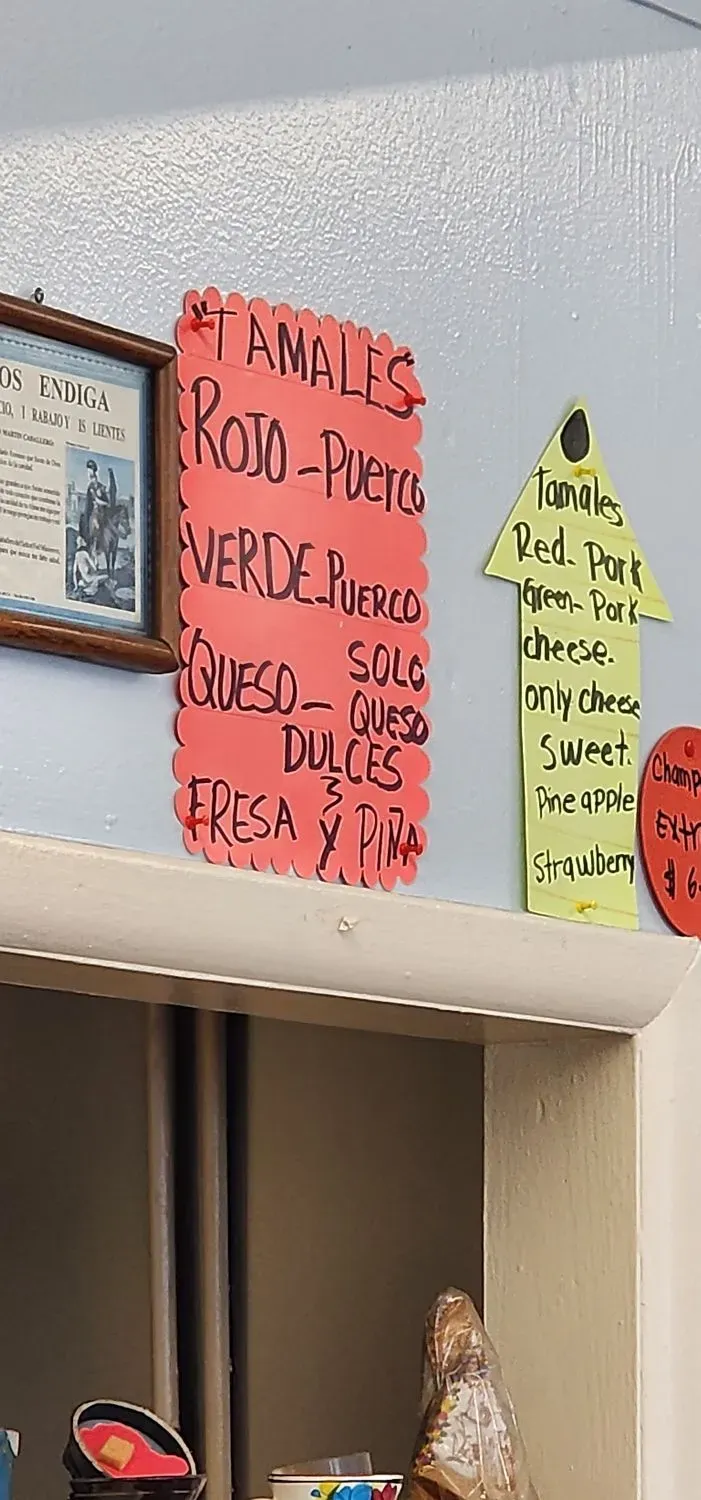 OS ENDIGA
MARTIN CABALLERO
"TAMALES"
ROJO - PUERCO
VERDE - PUERCO
QUESO - SOLO
QUESO
DULCES
FRESA Y PIÑA
Tamales
Red - Pork
Green - Pork
cheese.
only cheese
Sweet.
Pineapple
Strawberry
Champ
Extr
$6.